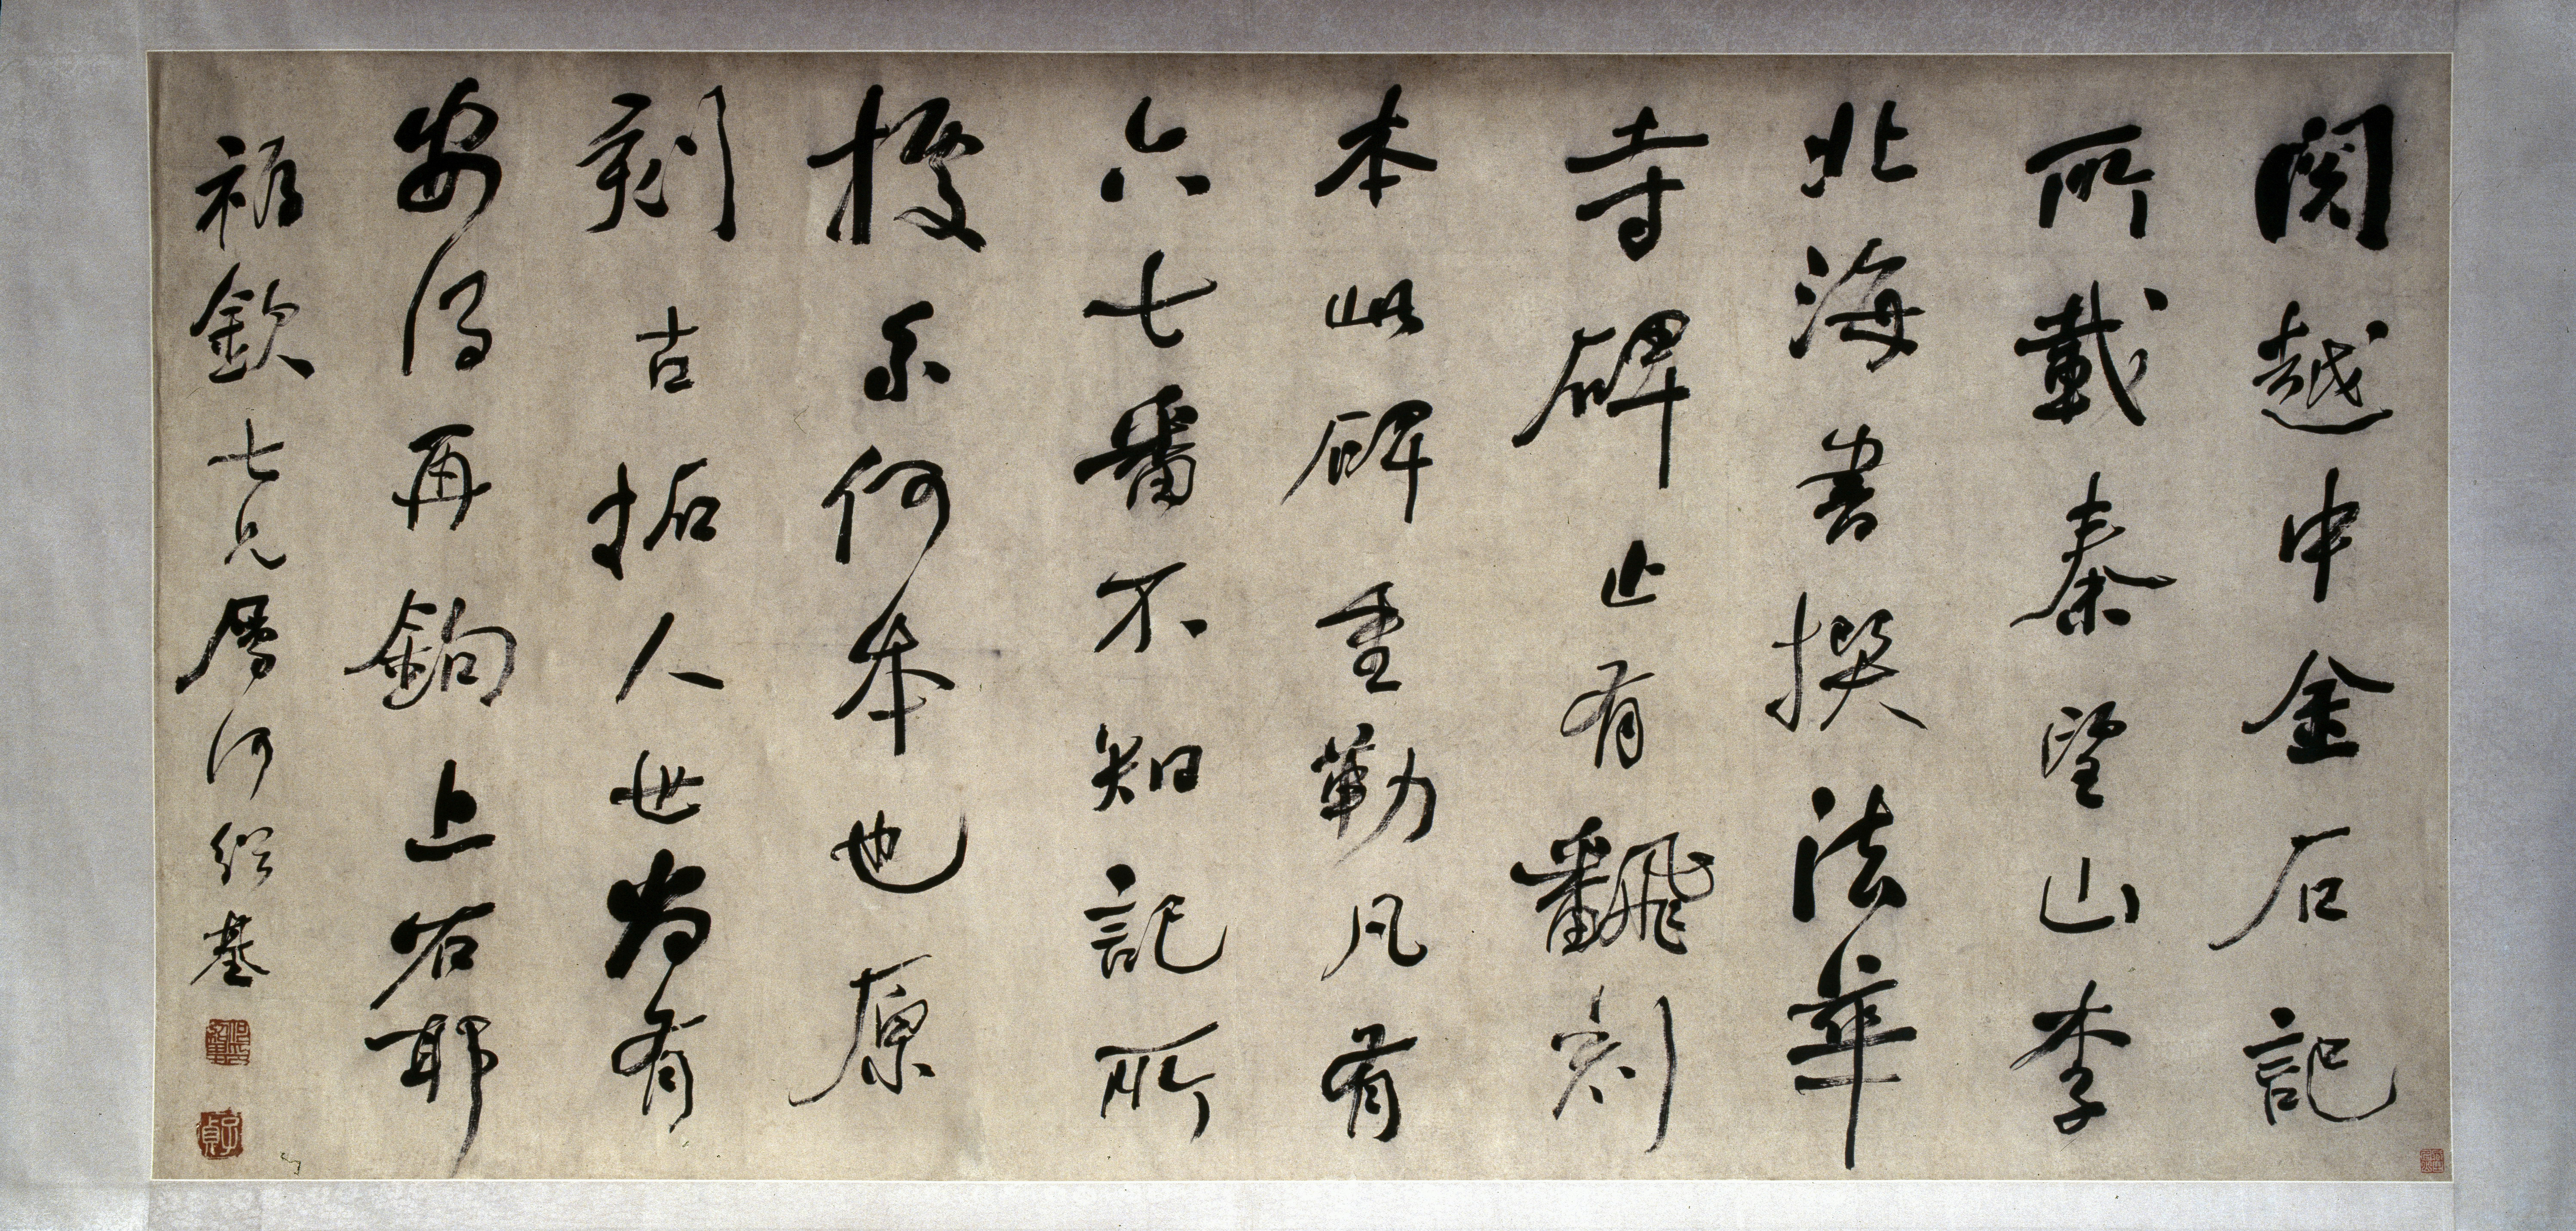 閱越中金石記
所載秦望山李
北海書撰法華
寺碑止有飜刻
本此碑重勒凡有
六七番不知記所
據系何本也原
刻古拓人世尚有
安得再鉤上石耶
欽七兄屬何紹基
子貞